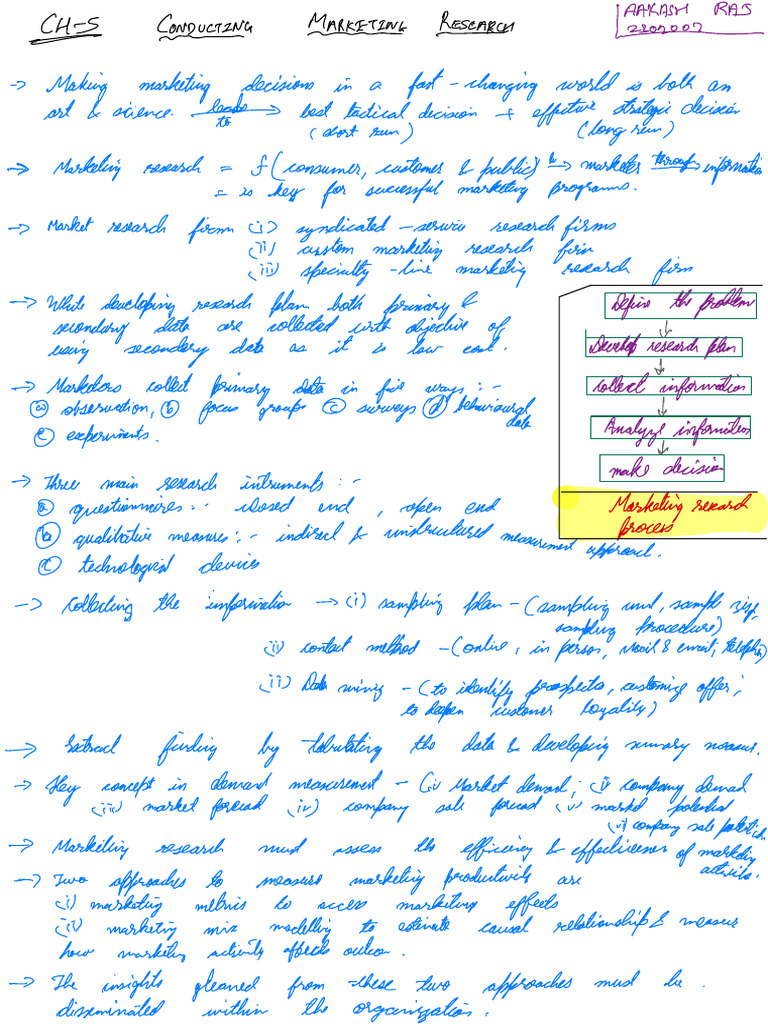 CH-5 CONDUCTING MARKETING RESEARCH
AAKASH RAJ
→ Making marketing decisions in a fast-changing world is both an
art & science. leads to → best tactical decision + effective strategic decision
(short run) (long run)
→ Marketing research = f(consumer, customer & public) → marketer through → information
= is key for successful marketing programs.
→ Market research firm (i) syndicated-service research firms
(ii) custom marketing research firm
(iii) specialty-line marketing research firm
→ While developing research plan both primary &
secondary data are collected with objective of
using secondary data as it is low cost.
Define the problem
Develop research plan
Collect information
Analyze information
make decision
Marketing research
process
→ Marketers collect primary data in five ways :-
(a) observation, (b) focus groups (c) surveys (d) behavioural data
(e) experiments.
→ Three main research intruments :-
(a) questionnires :- closed end, open end
(b) qualitative measures :- indirect & unstructured measurement approach.
(c) technological devices
→ Collecting the information → (i) sampling plan - (sampling unit, sample size,
sampling procedure)
(ii) contact method - (online, in person, mail & email,
(ii) Data mining - (to identify prospects, customize offer,
to deepen customer loyality)
→ Extract finding by tabulating the data & developing
→ Key concept in demand measurement - (i) Market demand; (ii) company demand
(iii) market forecast (iv) company sale forecast (v) market potential
(vi) company sale potential
→ Marketing research must assess the efficiency & effectiveness of marketing
activities.
→ Two approaches to measure marketing productivity are
(i) marketing metrics to access marketing effects
(ii) marketing mix modelling to estimate causal relationship & measure
how marketing activity affects outcom.
→ The insights gleaned from these two approaches must be
disseminated within the organization.